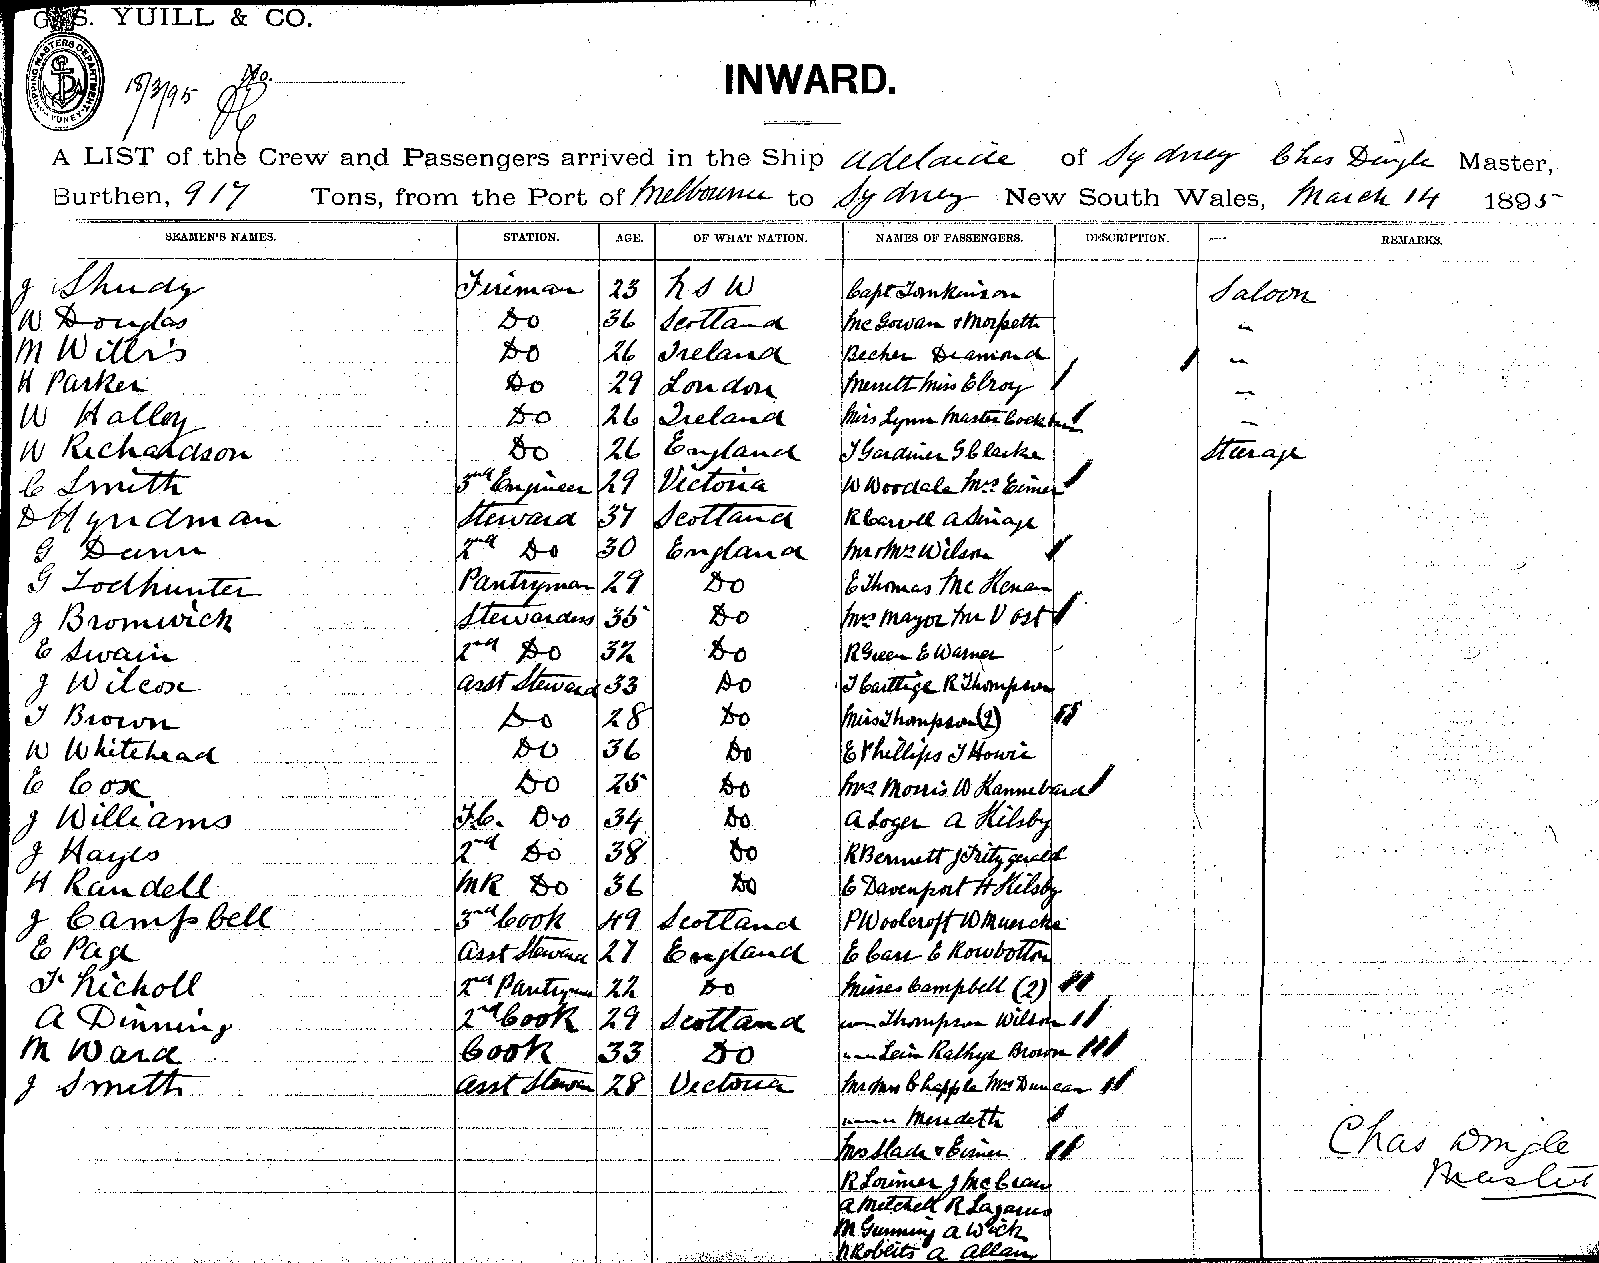 G. S. YUILL & CO.
SHIPPING MASTERS DEPARTMENT SYDNEY
18/3/95
No.
INWARD.
A LIST of the Crew and Passengers arrived in the Ship Adelaide of Sydney Chas Dingle Master,
Burthen, 917 Tons, from the Port of Melbourne to Sydney New South Wales, March 14 1895
SEAMEN'S NAMES. STATION. AGE. OF WHAT NATION. NAMES OF PASSENGERS. DESCRIPTION. REMARKS.
J Shudy Fireman 23 N S W Capt Tomkinson Saloon
W Douglas Do 36 Scotland McGowan & Morpeth "
M Willis Do 26 Ireland Becher Diamond "
H Parker Do 29 London Merrett Miss Elroy "
W Halley Do 26 Ireland Miss Lynn Master Cockburn "
W Richardson Do 26 England T Gardiner G Clarke Sterage
C Smith 3rd Engineer 29 Victoria W Woodale Mrs Eimer
D Hyndman Steward 37 Scotland R Carvell A
G Dunn 2nd Do 30 England Mr & Mrs Wilson
G Todhunter Pantryman 29 Do E Thomas McKenan
J Bromwick Stewardess 35 Do Mrs Mayor Mr Vost
E Swain 2nd Do 32 Do R Green E Warner
J Wilcox Asst Steward 33 Do T R Thompson
T Brown Do 28 Do Miss Thompson (2)
W Whitehead Do 36 Do E Phillips T Howie
E Cox Do 25 Do Mrs Morris W
J Williams F.C. Do 34 Do A Loger A Kilsby
J Hayes 2nd Do 38 Do R Bennett J Fitzgerald
H Randell MR Do 36 Do E Davenport H Kilsby
J Campbell 3rd Cook 49 Scotland P Woolcroft W Muercke
E Page Asst Steward 27 England E Carr E Rowbottom
F Nicholl 2nd Pantryman 22 Do Misses Campbell (2)
A Dinning 2nd Cook 29 Scotland " Thompson Wilson
M Ward Cook 33 Do " Brown
J Smith Asst Steward 28 Victoria Mr Mrs Chapple Mrs Duncan
" Meredeth
Mrs Slade & Eimer
R Lorimer J McCraw
A Mitchell R Lazarus
M Gunning A Wick
N Roberts A Allan
Chas Dingle
Master